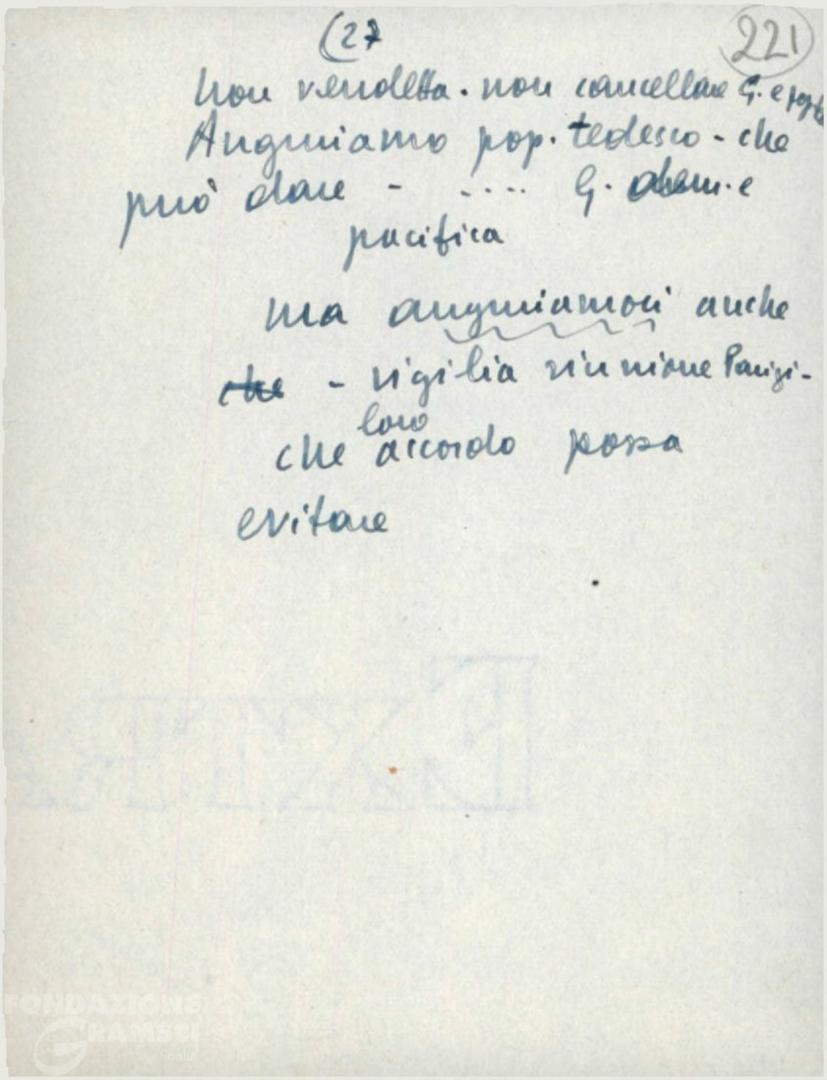 (27
221
non vendetta. non cancellare G. e
Auguriamo pop. tedesco - che
può dare - .... G. dem. e
pacifica
ma auguriamoci anche
che - vigilia riunione Parigi -
loro
che accordo possa
evitare
EXTRA
FONDAZIONE
GRAMSCI